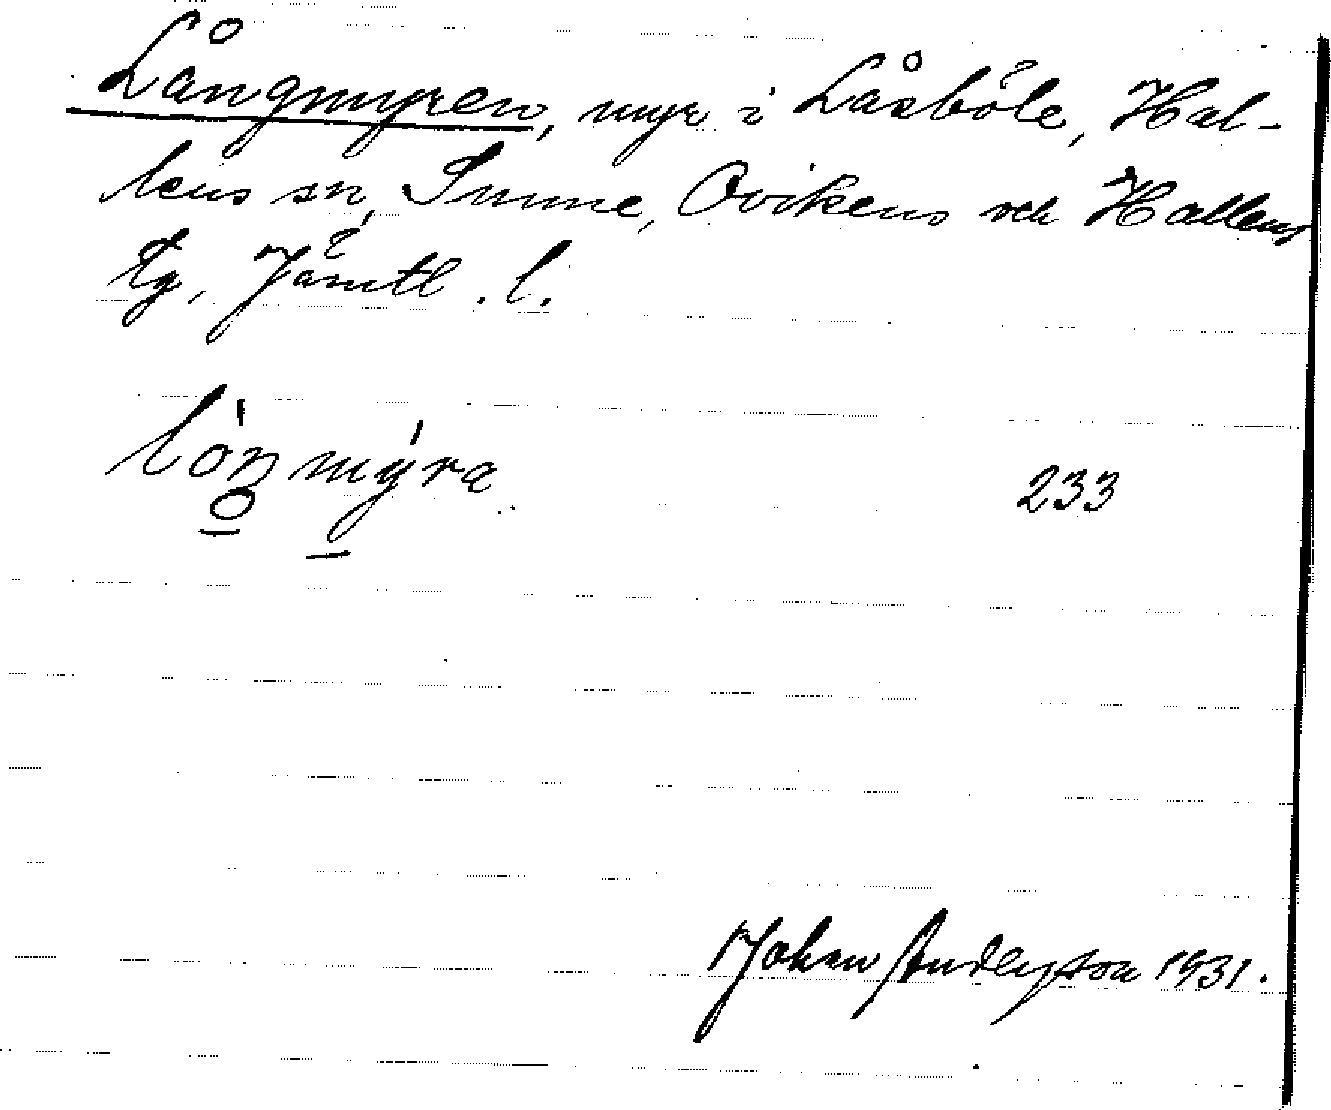 Långmyren, myr i Låsböle, Hal-
lens sn, Sunne, Ovikens och Hallens
tg, Jämtl. l.
lòŋmýra
233
Johan Anderson 1931.